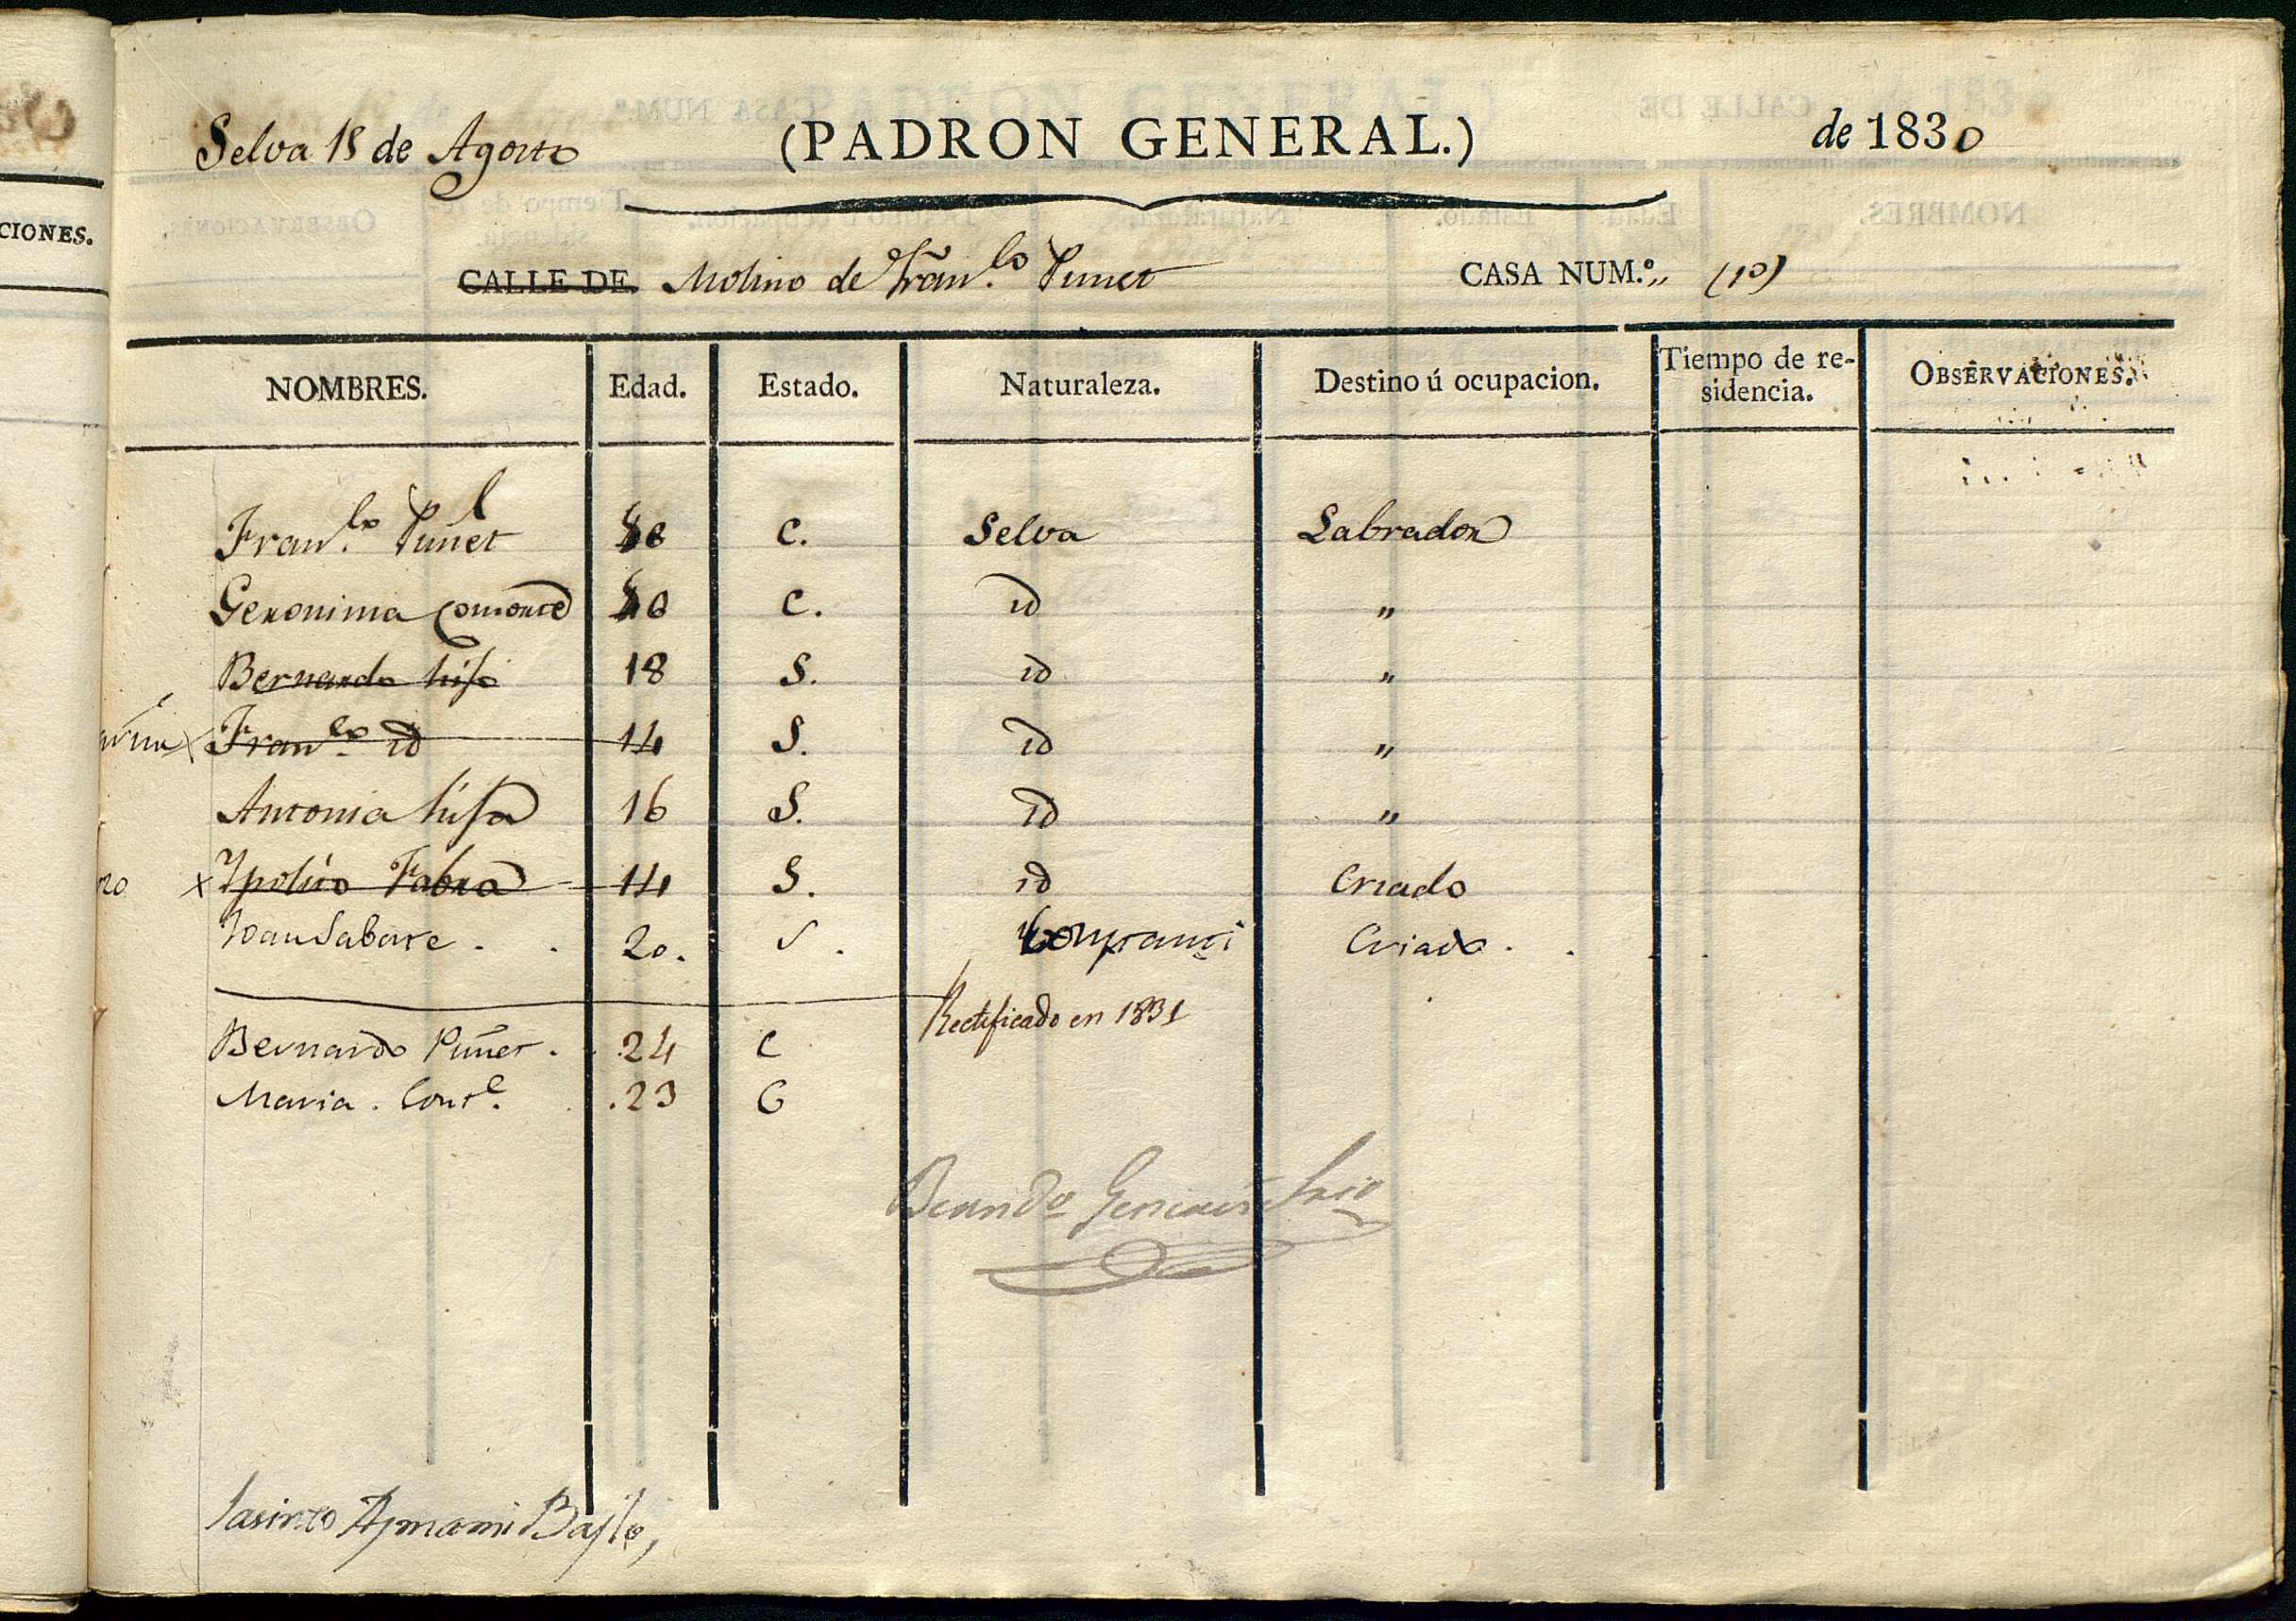 CIONES.
Selva 18 de Agosto (PADRON GENERAL.) de 1830
CALLE DE Molino de Fran.co Puñet CASA NUM.º,, (10)
NOMBRES. Edad. Estado. Naturaleza. Destino ú ocupacion. Tiempo de re-sidencia. OBSERVACIONES.
Fran.co Puñet C. Selva Labrador
Geronima consorte C. id "
Bernardo hijo 18 S. id "
Fran.co id 14 S. id "
Antonia hija 16 S. id "
x Ypolito Fabra 14 S. id Criado
Joan Sabate . . 20. S. Criado . .
Rectificado en 1831
Bernardo Puñet . . 24 C
Maria . Cons.e . .23 C
Jasinto Bayle,